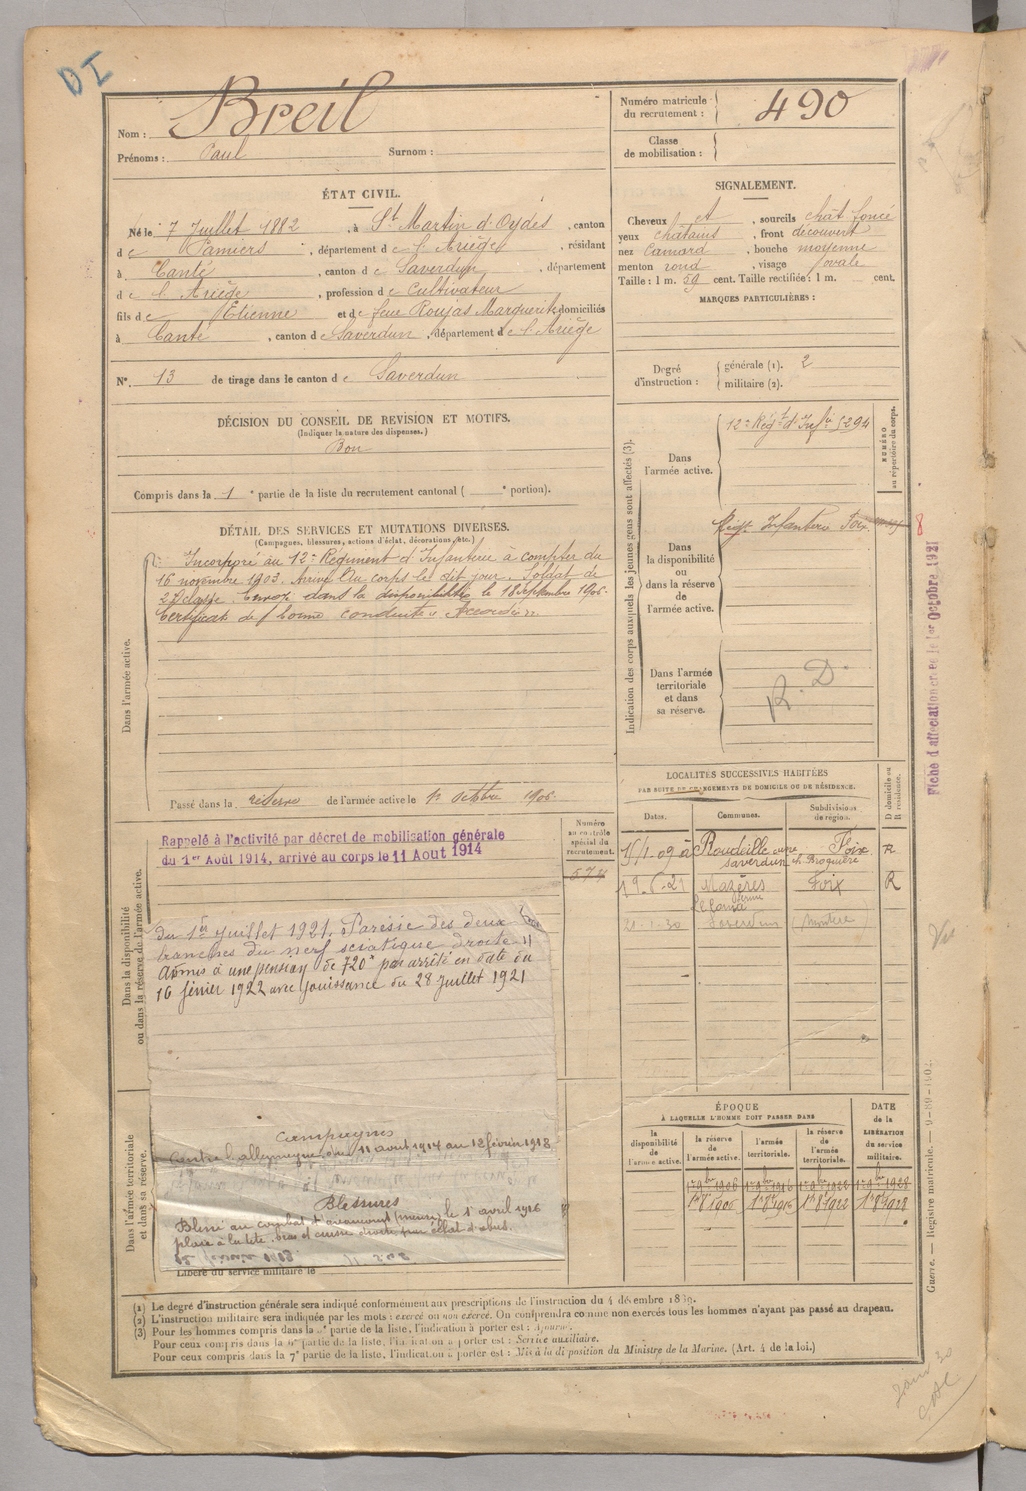 DI
Nom : Breil
Prénoms : Paul Surnom :
Numéro matricule du recrutement : 490
Classe de mobilisation :
ÉTAT CIVIL.
Né le 7 Juillet 1882, à St Martin d'Oydes, canton
de Pamiers, département de l'Ariège, résidant
à Canté, canton de Saverdun, département
de l'Ariège, profession de Cultivateur
fils de Etienne et de feue Roujas Marguerite, domiciliés
à Canté, canton de Saverdun, département de l'Ariège
N° 13 de tirage dans le canton de Saverdun
SIGNALEMENT.
Cheveux et, sourcils chât foncé
yeux chatains, front découvert
nez Camard, bouche moyenne
menton rond, visage ovale
Taille : 1 m. 59 cent. Taille rectifiée : 1 m. cent.
MARQUES PARTICULIÈRES :
Degré d'instruction : générale (1). 2
militaire (2).
DÉCISION DU CONSEIL DE REVISION ET MOTIFS.
(Indiquer la nature des dispenses.)
Bon
Compris dans la 1e partie de la liste du recrutement cantonal ( e portion).
DÉTAIL DES SERVICES ET MUTATIONS DIVERSES.
(Campagnes, blessures, actions d'éclat, décorations, etc.)
Dans l'armée active.
Incorporé au 12e Régiment d'Infanterie à compter du
16 novembre 1903. Arrivé Au corps le dit jour. Soldat de
2e classe. Envoyé dans la disponibilité le 18 septembre 1906.
Certificat de bonne conduite Accordé
Passé dans la réserve de l'armée active le 1r octobre 1906.
Indication des corps auxquels les jeunes gens sont affectés (3).
NUMÉRO au répertoire du corps.
Dans l'armée active.
12e Régt d'Infie 5294
Dans la disponibilité ou dans la réserve de l'armée active.
Régt Infanterie Foix
8
Dans l'armée territoriale et dans sa réserve.
R. D.
Fiche d'affectation créée le 1er Octobre 1921
LOCALITÉS SUCCESSIVES HABITÉES
PAR SUITE DE CHANGEMENTS DE DOMICILE OU DE RÉSIDENCE.
Dates. Communes. Subdivisions de région. D domicile ou R résidence.
15/1.09 Roudeille Foix R
Saverdun
19.6.21 Mazères Foix R
21.1.30 Saverdun
Dans la disponibilité ou dans la réserve de l'armée active.
Rappelé à l'activité par décret de mobilisation générale
du 1er Août 1914, arrivé au corps le 11 Aout 1914
Numéro au contrôle spécial du recrutement.
Du 1er juillet 1921. Parésie des deux
branches du nerf sciatique droite
Admis à une pension de 720f par arrêté en date du
16 février 1922 avec jouissance du 28 juillet 1921
Dans l'armée territoriale et dans sa réserve.
Campagnes
Contre l'allemagne du 11 aout 1914 au 12 février 1918
Blessures
Blessé au combat d'avaucourt (meuse) le 1r avril 1916
plaie à la tête, bras et cuisse droite par éclat d'obus.
Libéré du service militaire le
ÉPOQUE
À LAQUELLE L'HOMME DOIT PASSER DANS
la disponibilité de l'armée active. la réserve de l'armée active. l'armée territoriale. la réserve de l'armée territoriale. DATE de la LIBÉRATION du service militaire.
1r 9bre 1906 1r 9bre 1916 1r 9bre 1922 1r 9bre 1928
1r 8bre 1906 1r 8bre 1916 1r 8bre 1922 1r 8bre 1928
(1) Le degré d'instruction générale sera indiqué conformement aux prescriptions de l'instruction du 4 décembre 1889.
(2) L'instruction militaire sera indiquée par les mots : exercé ou non exercé. On comprendra comme non exercés tous les hommes n'ayant pas passé au drapeau.
(3) Pour les hommes compris dans la partie de la liste, l'indication à porter est : Ajourné.
Pour ceux compris dans la partie de la liste, l'indication à porter est : Service auxiliaire.
Pour ceux compris dans la 7e partie de la liste, l'indication à porter est : Mis à la disposition du Ministre de la Marine. (Art. 4 de la loi.)
Guerre. — Registre matricule. —
Vu